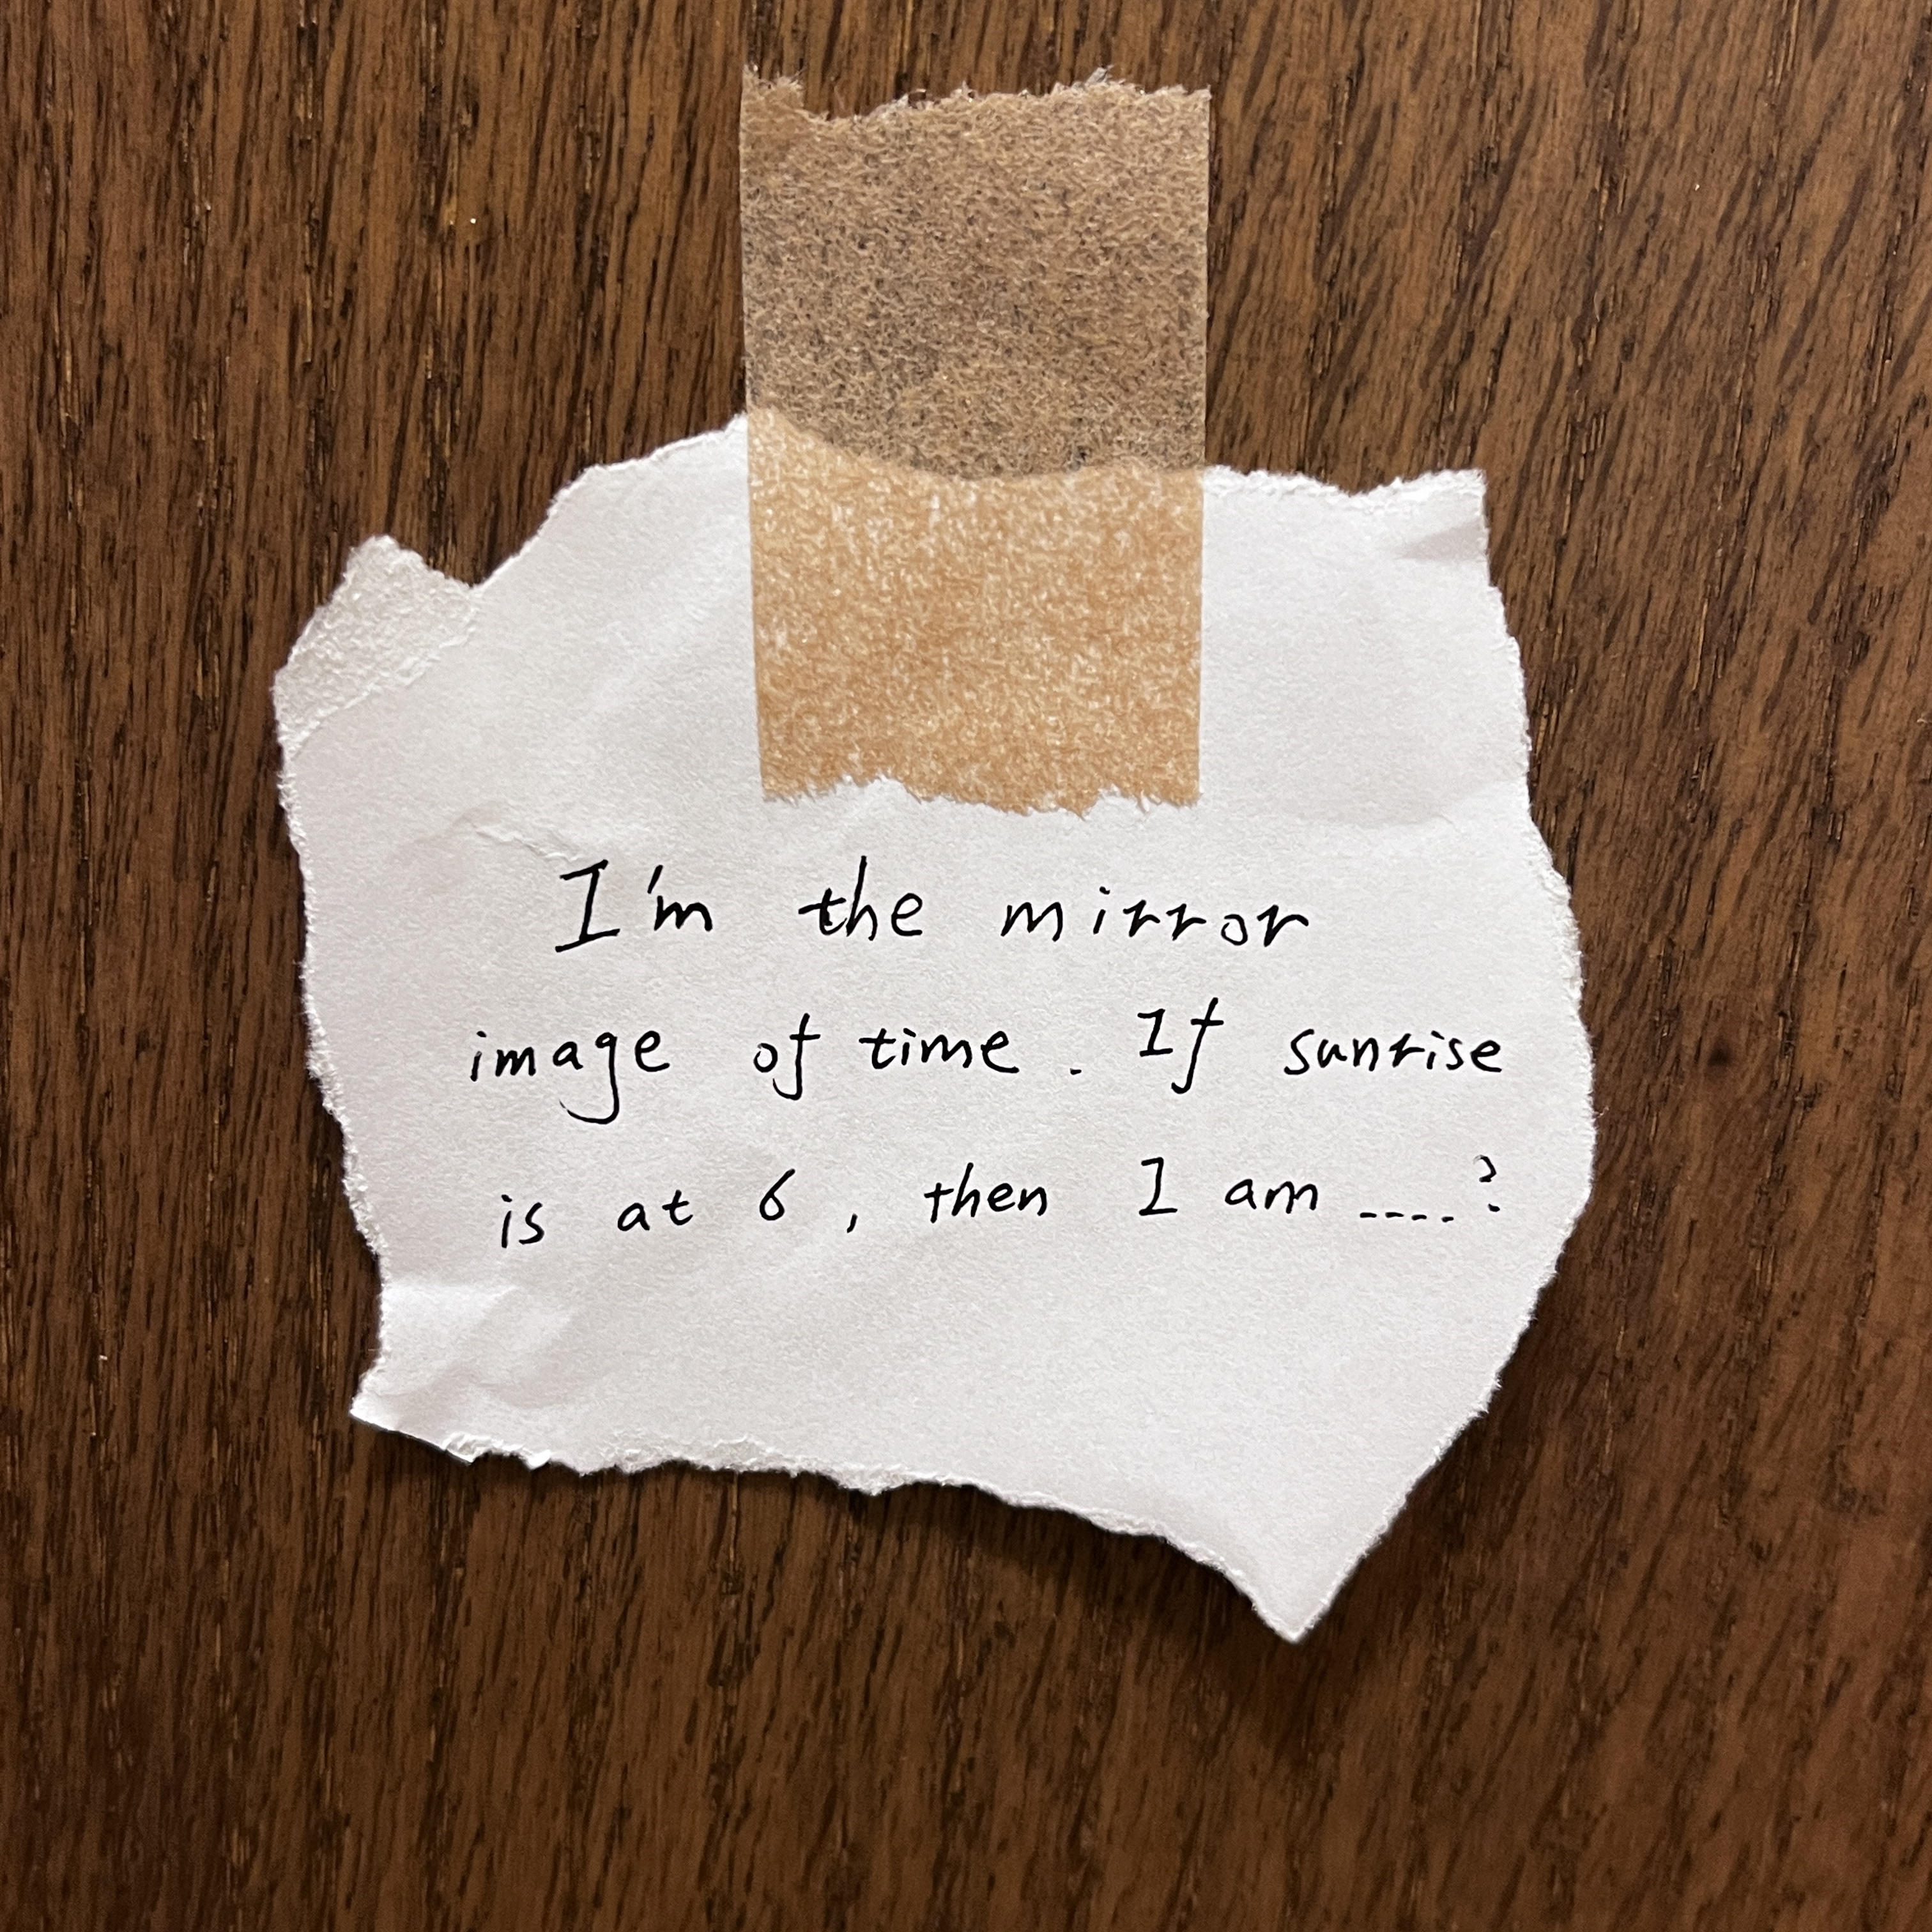 I'm the mirror
image of time. If sunrise
is at 6, then I am ....?